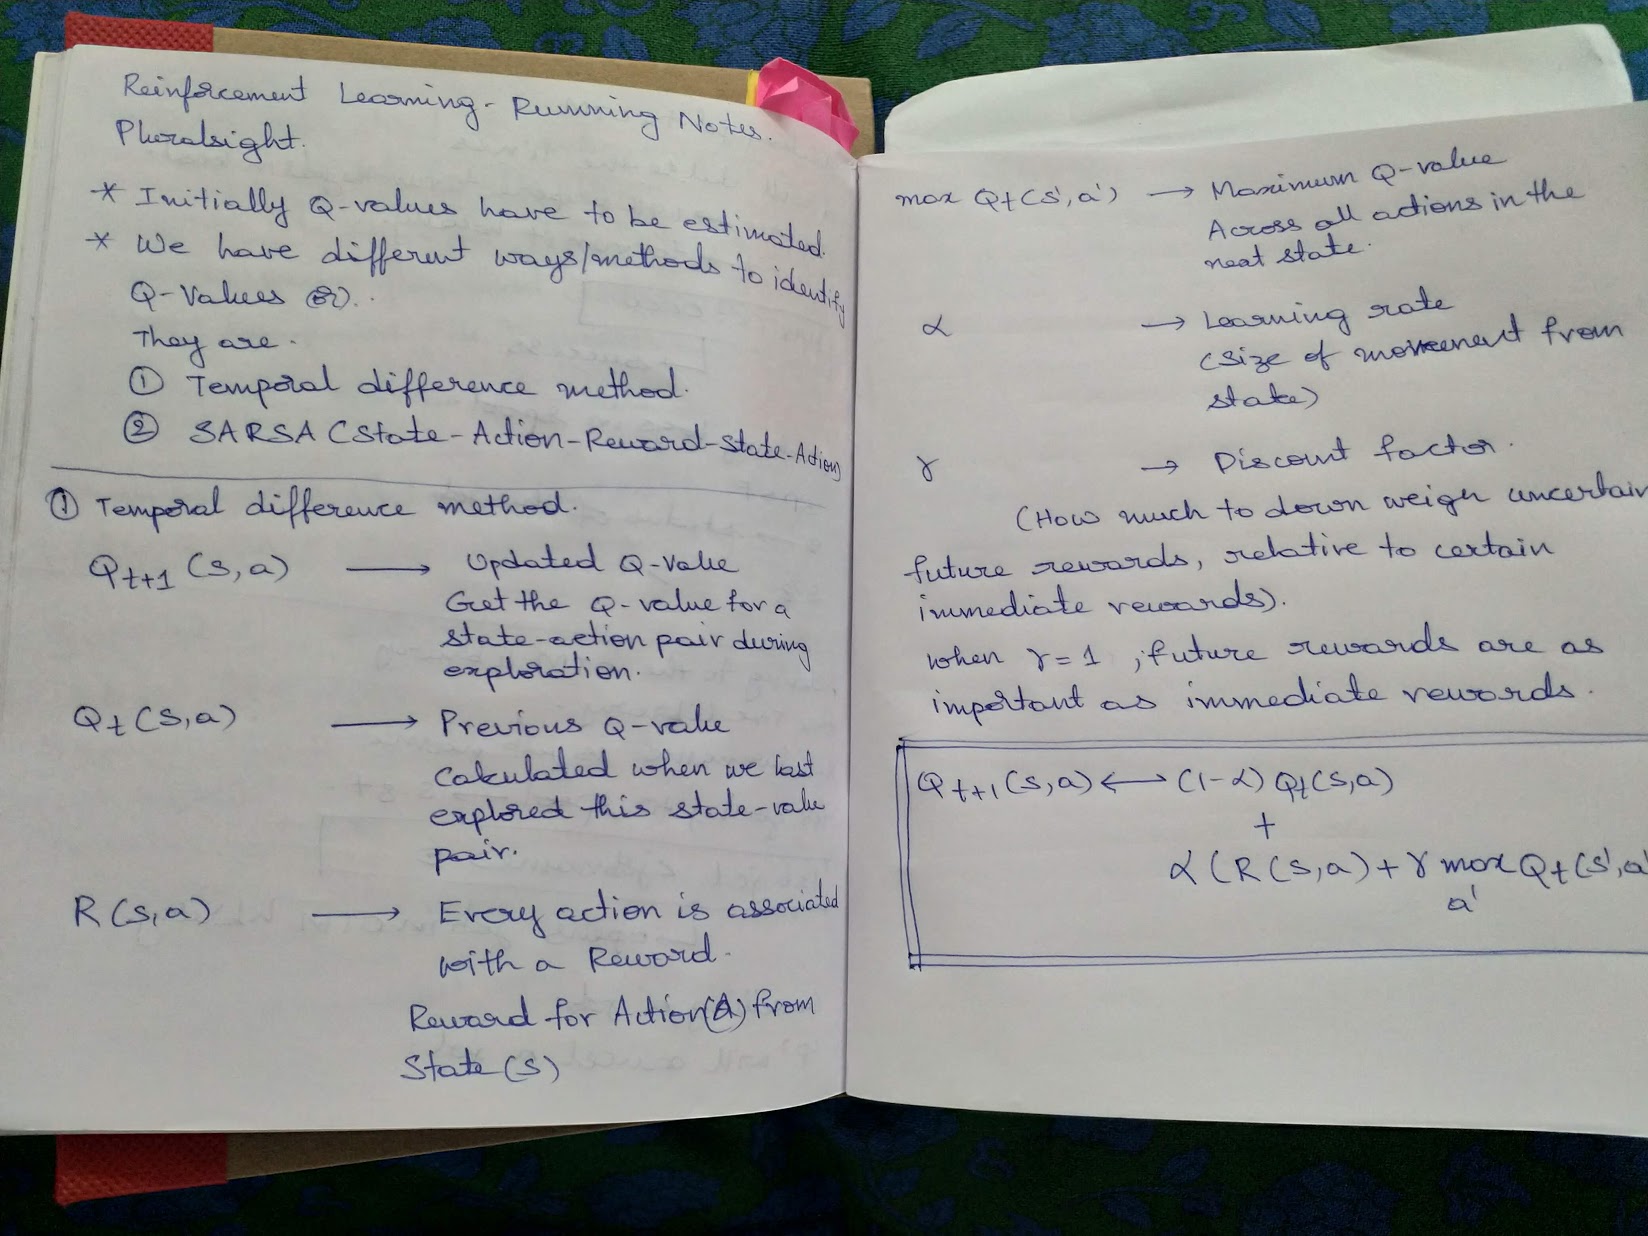 Reinforcement Learning - Running Notes.
Pluralsight.
* Initially Q-values have to be estimated.
* We have different ways/methods to identify
Q-Values (or)..
They are.
① Temporal difference method.
② SARSA (State-Action-Reward-State-Action)
① Temporal difference method.
Qt+1 (s,a) ⟶ Updated Q-Value
Get the Q-value for a
state-action pair during
exploration.
Qt (s,a) ⟶ Previous Q-value
calculated when we last
explored this state-value
pair.
R (s,a) ⟶ Every action is associated
with a Reward.
Reward for Action(A) from
State (s)
max Qt (s',a') → Maximum Q-value
Across all actions in the
next state.
α → Learning rate
(size of movement from
state)
γ → Discount factor.
(How much to down weigh uncertain
future rewards, relative to certain
immediate rewards).
when γ = 1 , future rewards are as
important as immediate rewards.
Qt+1 (s,a) ⟷ (1-α) Qt (s,a)
+
α (R (s,a) + γ max Qt (s',a'
a'